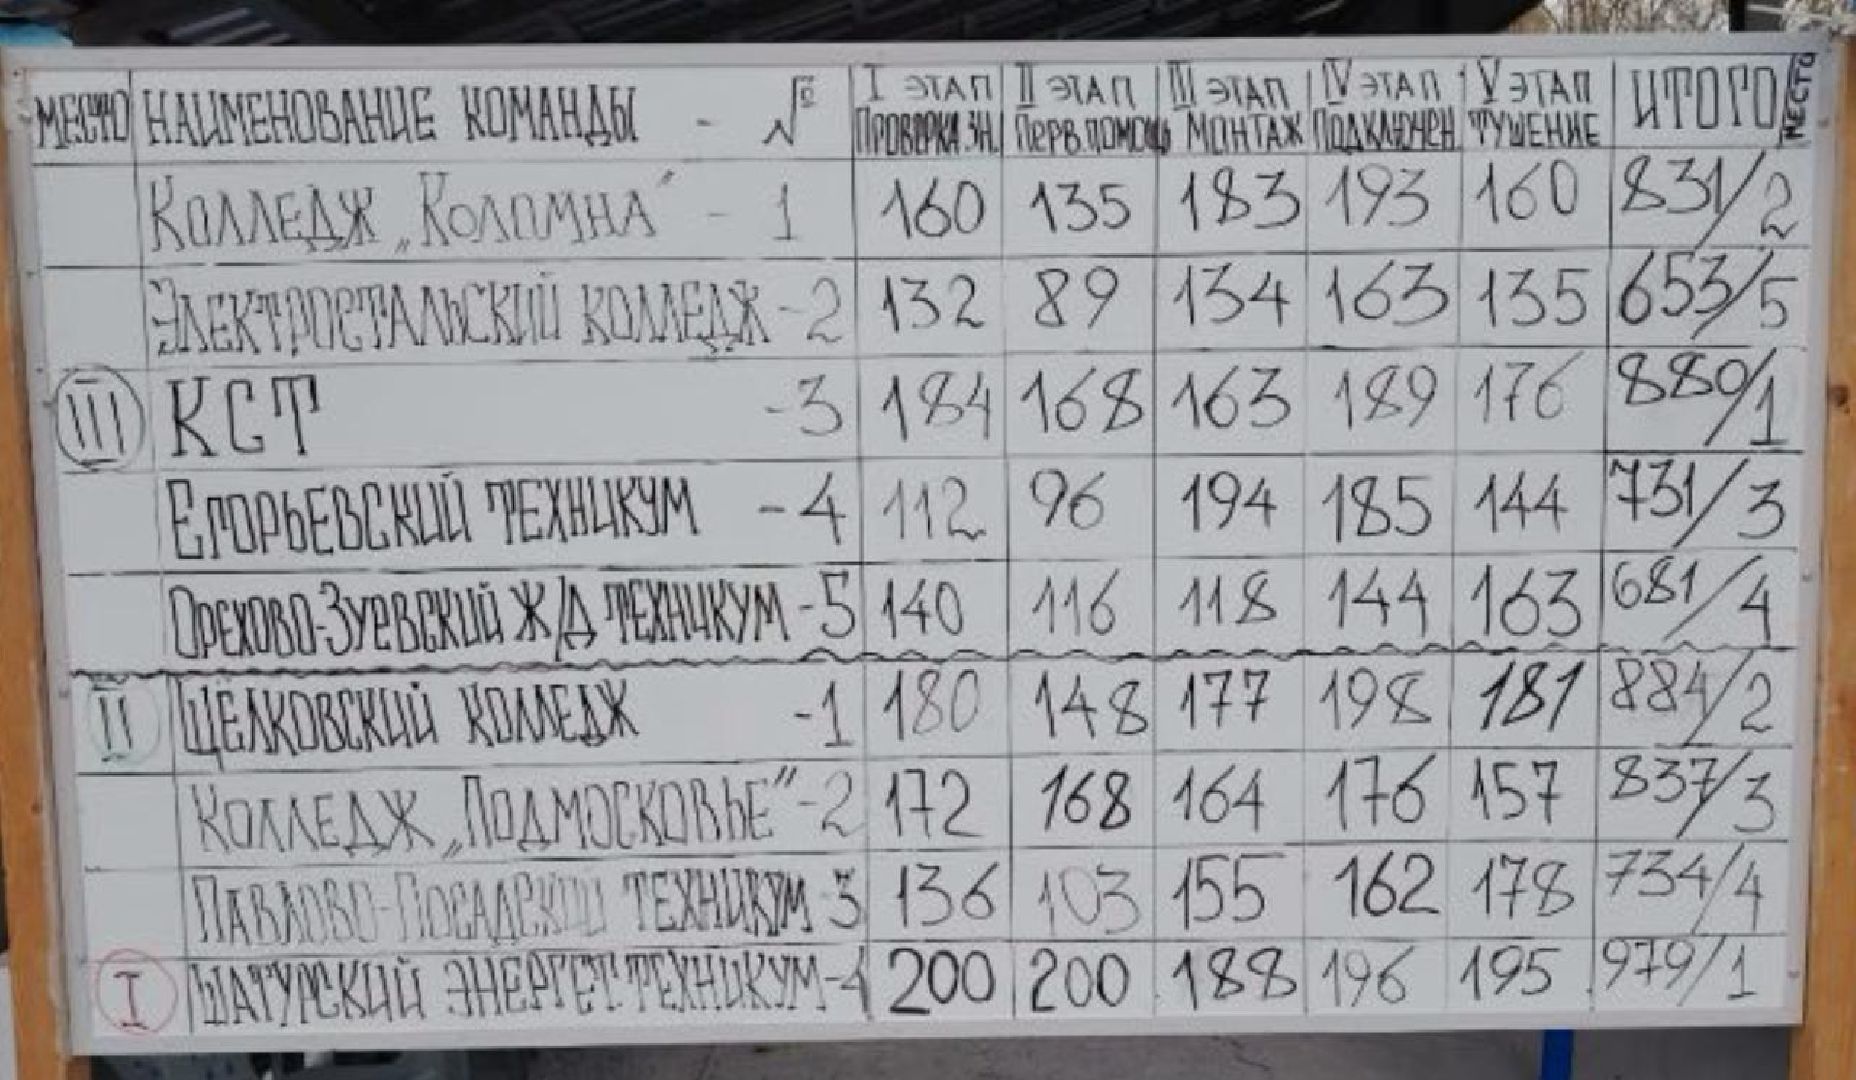 МЕСТО НАИМЕНОВАНИЕ КОМАНДЫ - № I ЭТАП ПРОВЕРКА ЗН. II ЭТАП ПЕРВ.ПОМОЩЬ III ЭТАП МОНТАЖ IV ЭТАП ПОДКЛЮЧЕН V ЭТАП ТУШЕНИЕ ИТОГО МЕСТО
КОЛЛЕДЖ „КОЛОМНА" - 1 160 135 183 193 160 831/2
ЭЛЕКТРОСТАЛЬСКИЙ КОЛЛЕДЖ - 2 132 89 134 163 135 653/5
III КСТ - 3 184 168 163 189 176 880/1
ЕГОРЬЕВСКИЙ ТЕХНИКУМ - 4 112 96 194 185 144 731/3
ОРЕХОВО-ЗУЕВСКИЙ Ж/Д ТЕХНИКУМ - 5 140 116 118 144 163 681/4
II ЩЁЛКОВСКИЙ КОЛЛЕДЖ - 1 180 148 177 198 181 884/2
КОЛЛЕДЖ „ПОДМОСКОВЬЕ" - 2 172 168 164 176 157 837/3
ПАВЛОВО-ПОСАДСКИЙ ТЕХНИКУМ - 3 136 103 155 162 178 734/4
I ШАТУРСКИЙ ЭНЕРГЕТ. ТЕХНИКУМ - 4 200 200 188 196 195 979/1